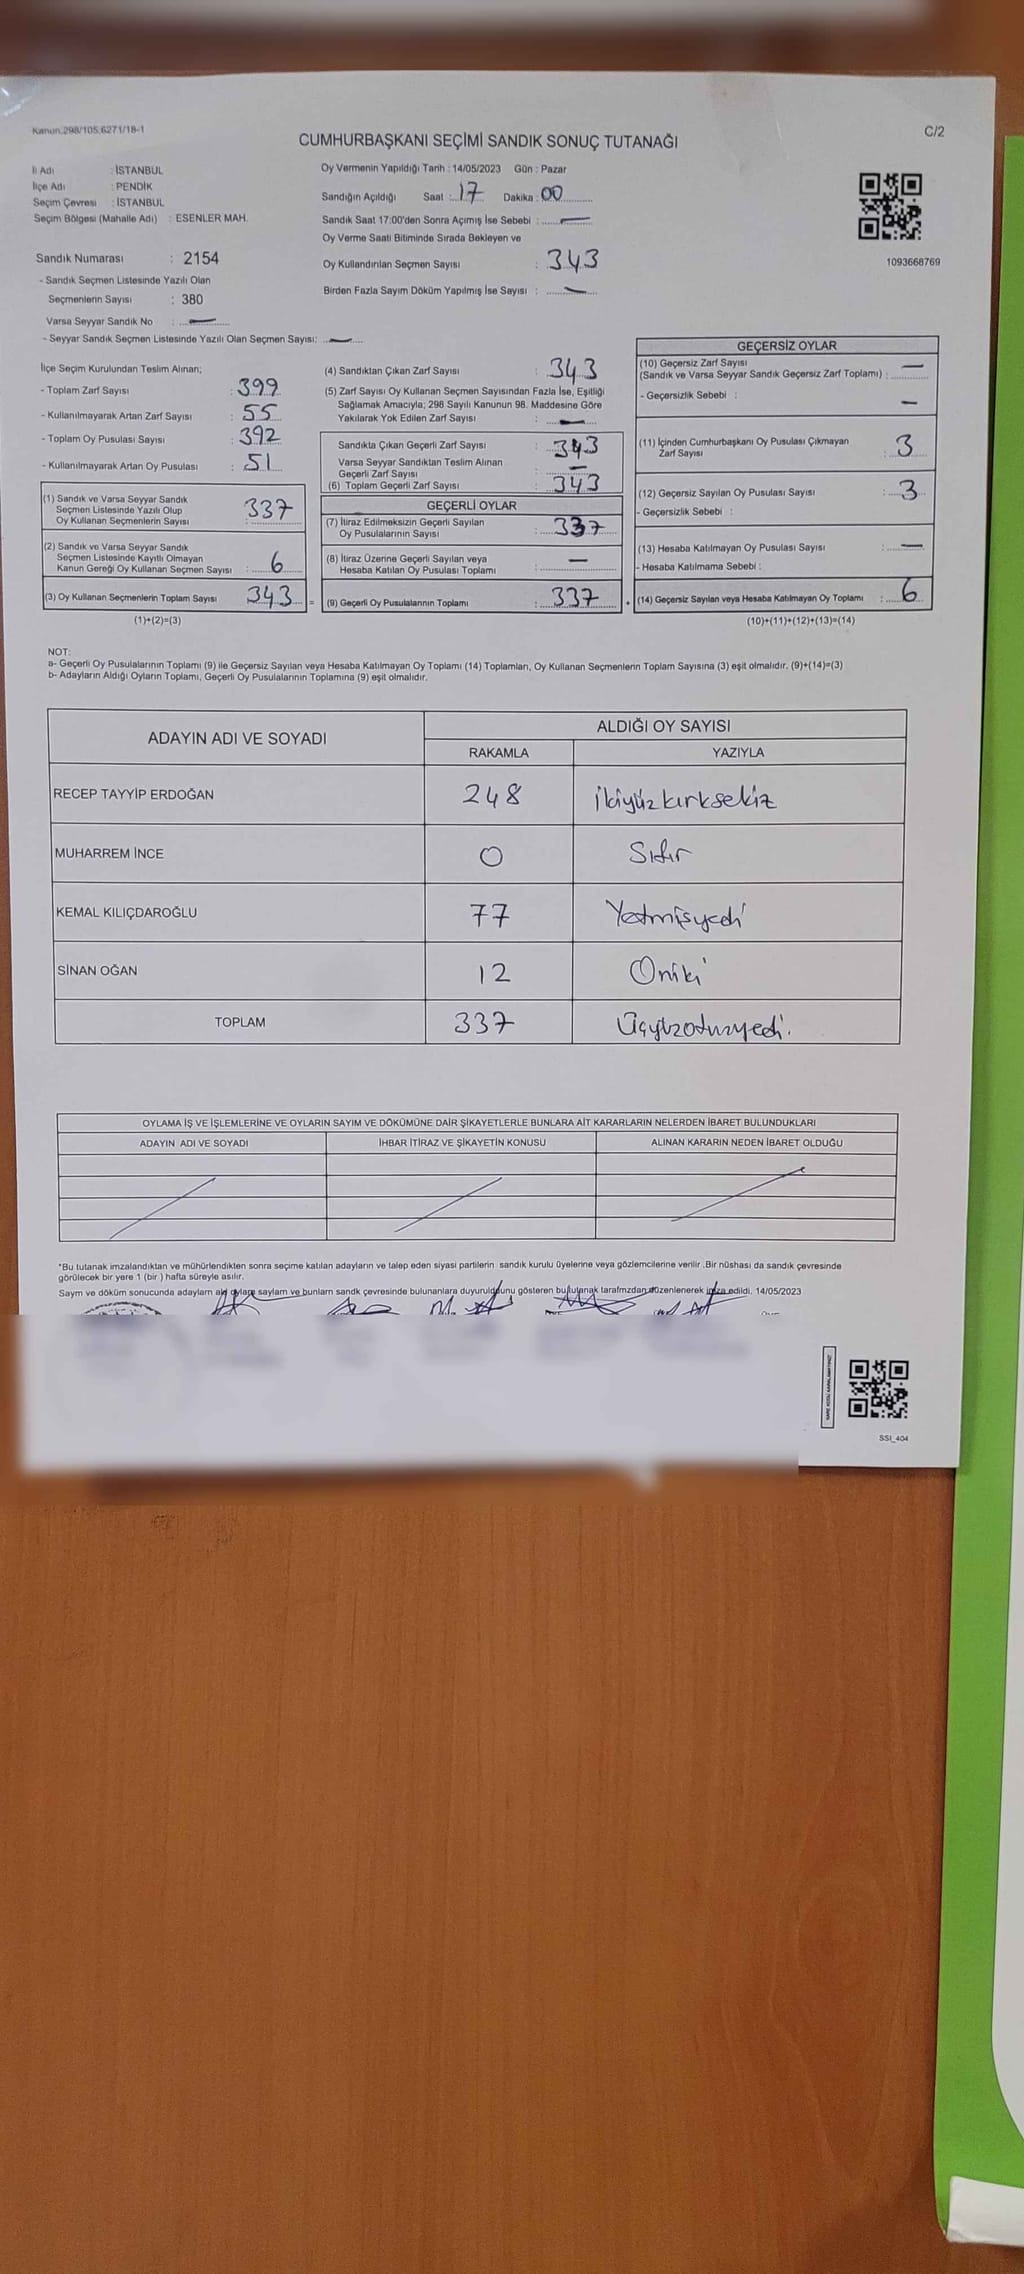 Kanun.298/105,6271/18-1
C/2
CUMHURBAŞKANI SEÇİMİ SANDIK SONUÇ TUTANAĞI
İl Adı : İSTANBUL
İlçe Adı : PENDİK
Seçim Çevresi : İSTANBUL
Seçim Bölgesi (Mahalle Adı) : ESENLER MAH.
Oy Vermenin Yapıldığı Tarih : 14/05/2023 Gün : Pazar
Sandığın Açıldığı Saat : 17 Dakika : 00
Sandık Saat 17:00'den Sonra Açımış İse Sebebi : —
Oy Verme Saati Bitiminde Sırada Bekleyen ve
Oy Kullandırılan Seçmen Sayısı : 343
Birden Fazla Sayım Döküm Yapılmış İse Sayısı : —
1093668769
Sandık Numarası : 2154
- Sandık Seçmen Listesinde Yazılı Olan
Seçmenlerin Sayısı : 380
Varsa Seyyar Sandık No : —
- Seyyar Sandık Seçmen Listesinde Yazılı Olan Seçmen Sayısı: —
İlçe Seçim Kurulundan Teslim Alınan;
- Toplam Zarf Sayısı : 399
- Kullanılmayarak Artan Zarf Sayısı : 55
- Toplam Oy Pusulası Sayısı : 392
- Kullanılmayarak Artan Oy Pusulası : 51
(1) Sandık ve Varsa Seyyar Sandık
Seçmen Listesinde Yazılı Olup
Oy Kullanan Seçmenlerin Sayısı : 337
(2) Sandık ve Varsa Seyyar Sandık
Seçmen Listesinde Kayıtlı Olmayan
Kanun Gereği Oy Kullanan Seçmen Sayısı : 6
(3) Oy Kullanan Seçmenlerin Toplam Sayısı : 343 =
(1)+(2)=(3)
(4) Sandıktan Çıkan Zarf Sayısı : 343
(5) Zarf Sayısı Oy Kullanan Seçmen Sayısından Fazla İse, Eşitliği
Sağlamak Amacıyla; 298 Sayılı Kanunun 98. Maddesine Göre
Yakılarak Yok Edilen Zarf Sayısı : —
Sandıkta Çıkan Geçerli Zarf Sayısı : 343
Varsa Seyyar Sandıktan Teslim Alınan
Geçerli Zarf Sayısı : —
(6) Toplam Geçerli Zarf Sayısı : 343
GEÇERLİ OYLAR
(7) İtiraz Edilmeksizin Geçerli Sayılan
Oy Pusulalarının Sayısı : 337
(8) İtiraz Üzerine Geçerli Sayılan veya
Hesaba Katılan Oy Pusulası Toplamı : —
(9) Geçerli Oy Pusulalarının Toplamı : 337 +
GEÇERSİZ OYLAR
(10) Geçersiz Zarf Sayısı
(Sandık ve Varsa Seyyar Sandık Geçersiz Zarf Toplamı) : —
- Geçersizlik Sebebi : —
(11) İçinden Cumhurbaşkanı Oy Pusulası Çıkmayan
Zarf Sayısı : 3
(12) Geçersiz Sayılan Oy Pusulası Sayısı : 3
- Geçersizlik Sebebi :
(13) Hesaba Katılmayan Oy Pusulası Sayısı : —
- Hesaba Katılmama Sebebi :
(14) Geçersiz Sayılan veya Hesaba Katılmayan Oy Toplamı : 6
(10)+(11)+(12)+(13)=(14)
NOT:
a- Geçerli Oy Pusulalarının Toplamı (9) ile Geçersiz Sayılan veya Hesaba Katılmayan Oy Toplamı (14) Toplamları, Oy Kullanan Seçmenlerin Toplam Sayısına (3) eşit olmalıdır. (9)+(14)=(3)
b- Adayların Aldığı Oyların Toplamı, Geçerli Oy Pusulalarının Toplamına (9) eşit olmalıdır.
ADAYIN ADI VE SOYADI ALDIĞI OY SAYISI
RAKAMLA YAZIYLA
RECEP TAYYİP ERDOĞAN 248 İkiyüzkırksekiz
MUHARREM İNCE 0 Sıfır
KEMAL KILIÇDAROĞLU 77 Yetmişyedi
SİNAN OĞAN 12 Oniki
TOPLAM 337 Üçyüzotuzyedi.
OYLAMA İŞ VE İŞLEMLERİNE VE OYLARIN SAYIM VE DÖKÜMÜNE DAİR ŞİKAYETLERLE BUNLARA AİT KARARLARIN NELERDEN İBARET BULUNDUKLARI
ADAYIN ADI VE SOYADI İHBAR İTİRAZ VE ŞİKAYETİN KONUSU ALINAN KARARIN NEDEN İBARET OLDUĞU
*Bu tutanak imzalandıktan ve mühürlendikten sonra seçime katılan adayların ve talep eden siyasi partilerin sandık kurulu üyelerine veya gözlemcilerine verilir. Bir nüshası da sandık çevresinde
görülecek bir yere 1 (bir ) hafta süreyle asılır.
Sayım ve döküm sonucunda adayların aldı oyların sayları ve bunların sandk çevresinde bulunanlara duyurulduğunu gösteren bu tutanak tarafmızdan düzenlenerek imza edildi. 14/05/2023
SSI_404